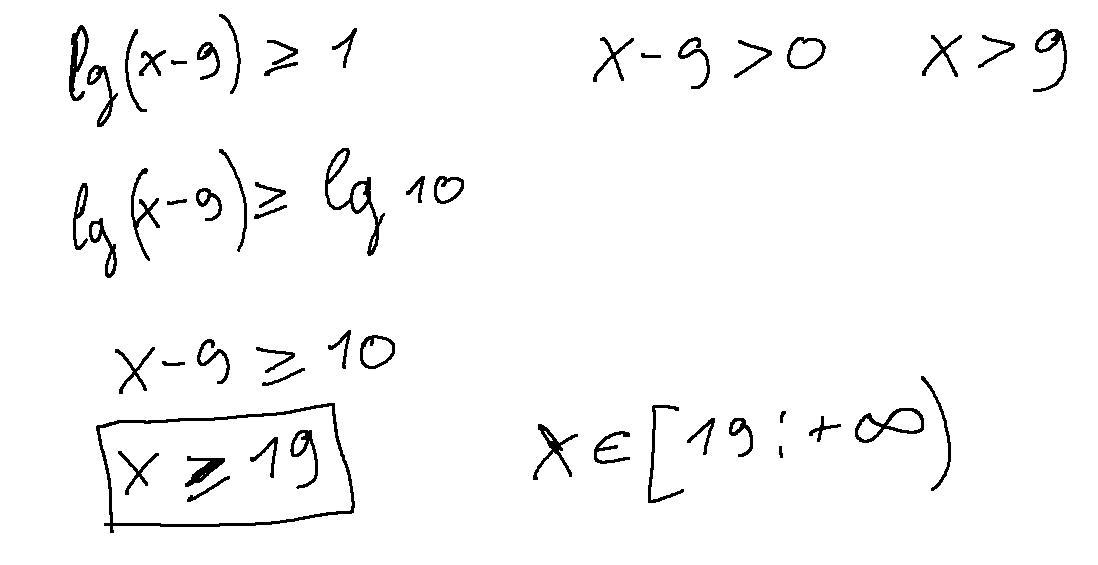 lg(x-9) ≥ 1 x-9>0 x>9
lg(x-9) ≥ lg 10
x-9 ≥ 10
x ≥ 19 x ∈ [19; +∞)